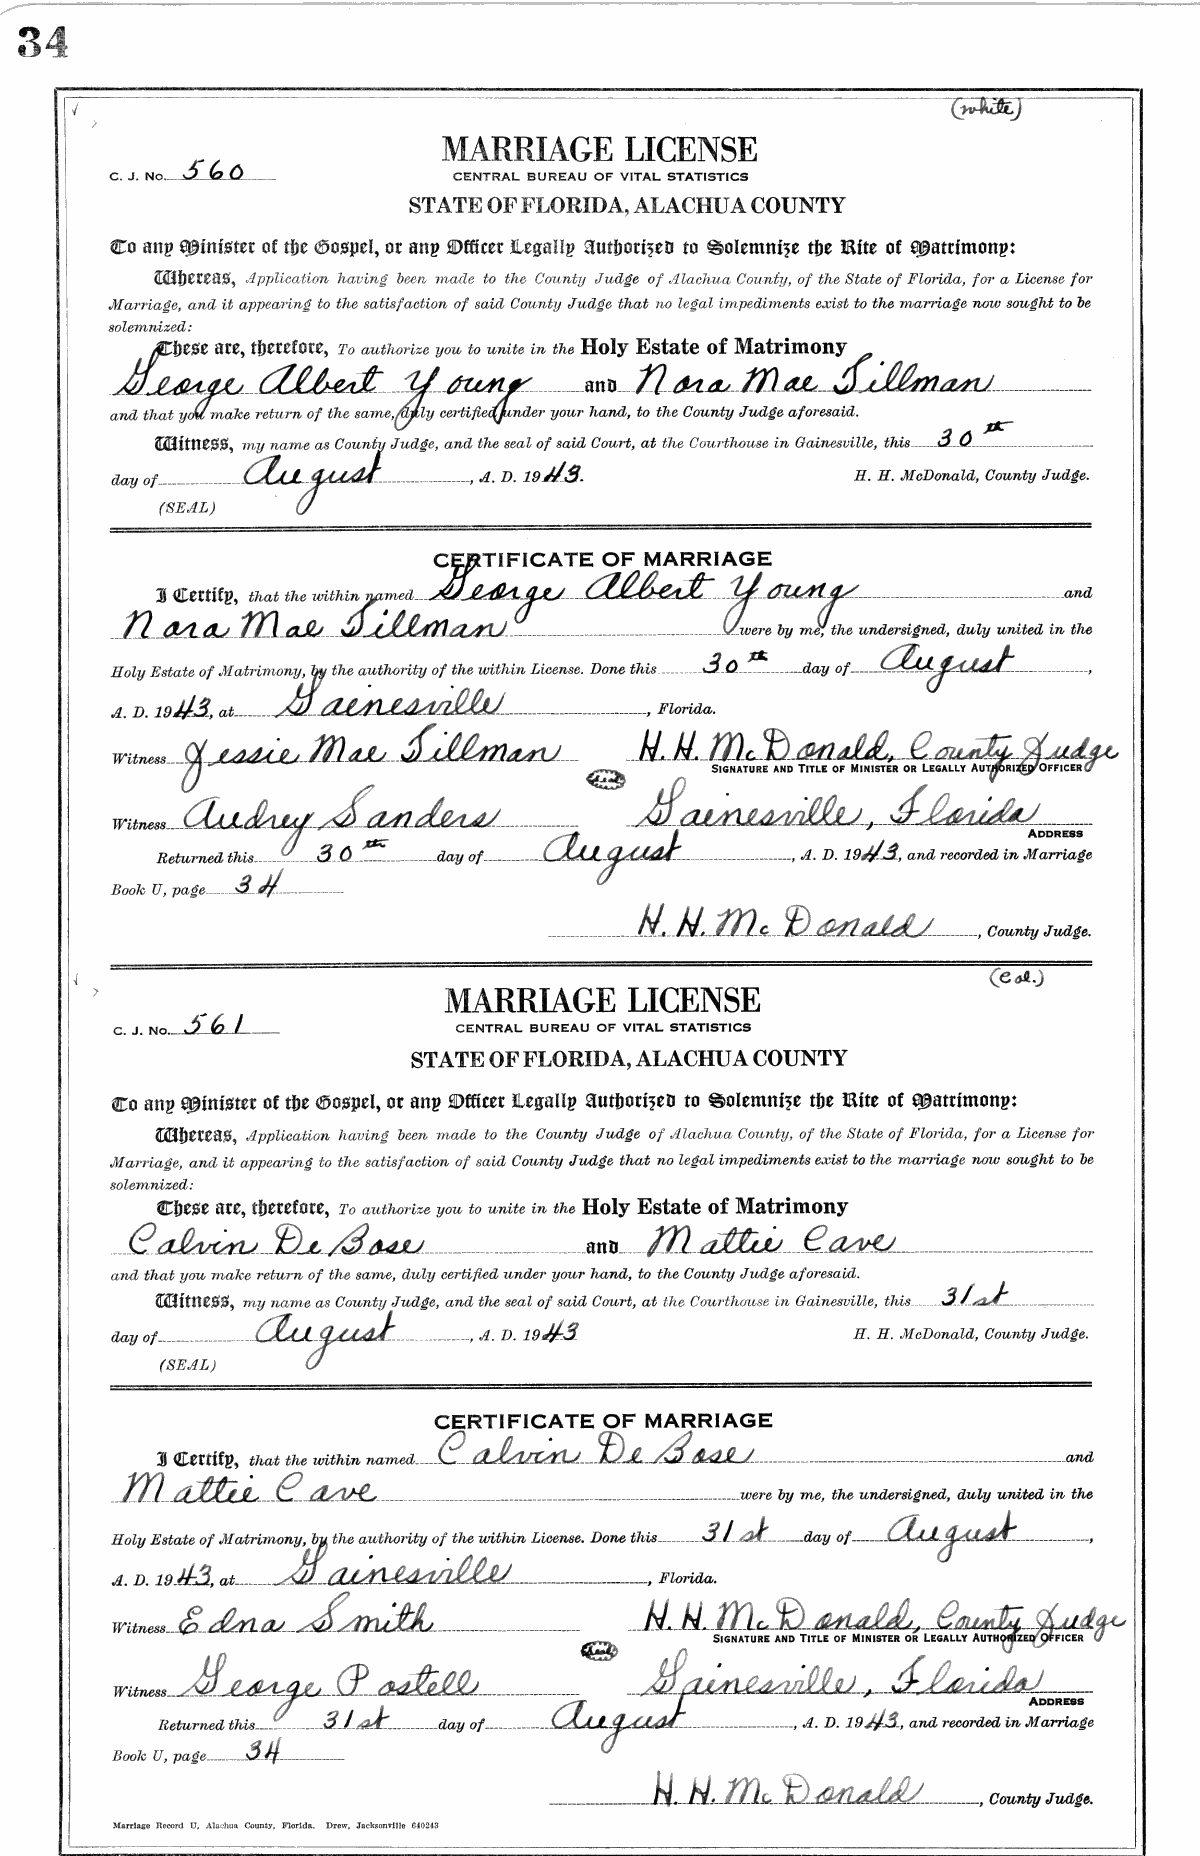 34
(white)
MARRIAGE LICENSE
C. J. No. 560
CENTRAL BUREAU OF VITAL STATISTICS
STATE OF FLORIDA, ALACHUA COUNTY
To any Minister of the Gospel, or any Officer Legally Authorized to Solemnize the Rite of Matrimony:
Whereas, Application having been made to the County Judge of Alachua County, of the State of Florida, for a License for
Marriage, and it appearing to the satisfaction of said County Judge that no legal impediments exist to the marriage now sought to be
solemnized:
These are, therefore, To authorize you to unite in the Holy Estate of Matrimony
George Albert Young and Nora Mae Tillman
and that you make return of the same, duly certified under your hand, to the County Judge aforesaid.
Witness, my name as County Judge, and the seal of said Court, at the Courthouse in Gainesville, this 30th
day of August, A. D. 1943. H. H. McDonald, County Judge.
(SEAL)
CERTIFICATE OF MARRIAGE
I Certify, that the within named George Albert Young and
Nora Mae Tillman were by me, the undersigned, duly united in the
Holy Estate of Matrimony, by the authority of the within License. Done this 30th day of August,
A. D. 1943, at Gainesville, Florida.
Witness Jessie Mae Tillman H. H. McDonald, County Judge
SIGNATURE AND TITLE OF MINISTER OR LEGALLY AUTHORIZED OFFICER
Seal
Witness Audrey Sanders Gainesville, Florida
ADDRESS
Returned this 30th day of August, A. D. 1943, and recorded in Marriage
Book U, page 34
H. H. McDonald, County Judge.
(Col.)
MARRIAGE LICENSE
C. J. No. 561
CENTRAL BUREAU OF VITAL STATISTICS
STATE OF FLORIDA, ALACHUA COUNTY
To any Minister of the Gospel, or any Officer Legally Authorized to Solemnize the Rite of Matrimony:
Whereas, Application having been made to the County Judge of Alachua County, of the State of Florida, for a License for
Marriage, and it appearing to the satisfaction of said County Judge that no legal impediments exist to the marriage now sought to be
solemnized:
These are, therefore, To authorize you to unite in the Holy Estate of Matrimony
Calvin De Bose and Mattie Cave
and that you make return of the same, duly certified under your hand, to the County Judge aforesaid.
Witness, my name as County Judge, and the seal of said Court, at the Courthouse in Gainesville, this 31st
day of August, A. D. 1943 H. H. McDonald, County Judge.
(SEAL)
CERTIFICATE OF MARRIAGE
I Certify, that the within named Calvin De Bose and
Mattie Cave were by me, the undersigned, duly united in the
Holy Estate of Matrimony, by the authority of the within License. Done this 31st day of August,
A. D. 1943, at Gainesville, Florida.
Witness Edna Smith H. H. McDonald, County Judge
SIGNATURE AND TITLE OF MINISTER OR LEGALLY AUTHORIZED OFFICER
Seal
Witness George Postell Gainesville, Florida
ADDRESS
Returned this 31st day of August, A. D. 1943, and recorded in Marriage
Book U, page 34
H. H. McDonald, County Judge.
Marriage Record U, Alachua County, Florida. Drew, Jacksonville 640243